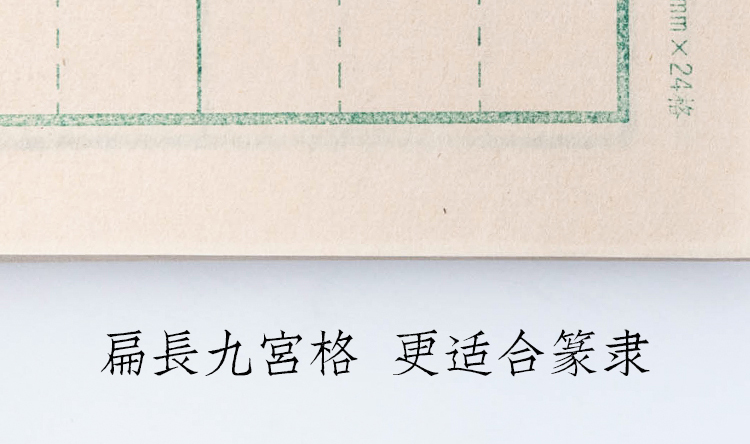 mm×24格
扁長九宮格 更适合篆隶